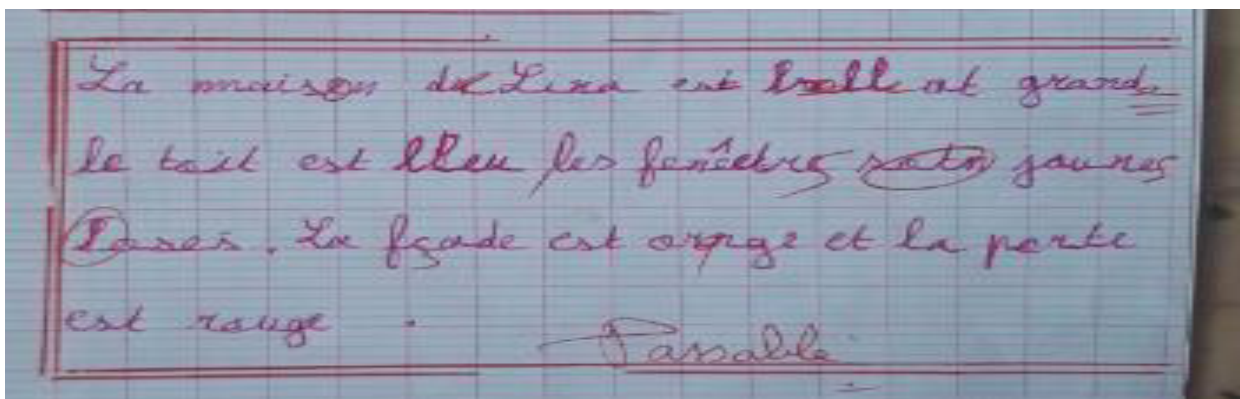 La maison de Lina est bell et grande
le toit est bleu les fenêtres sotn jaunes
. La fçade est orage et la porte
est rouge .
Passable